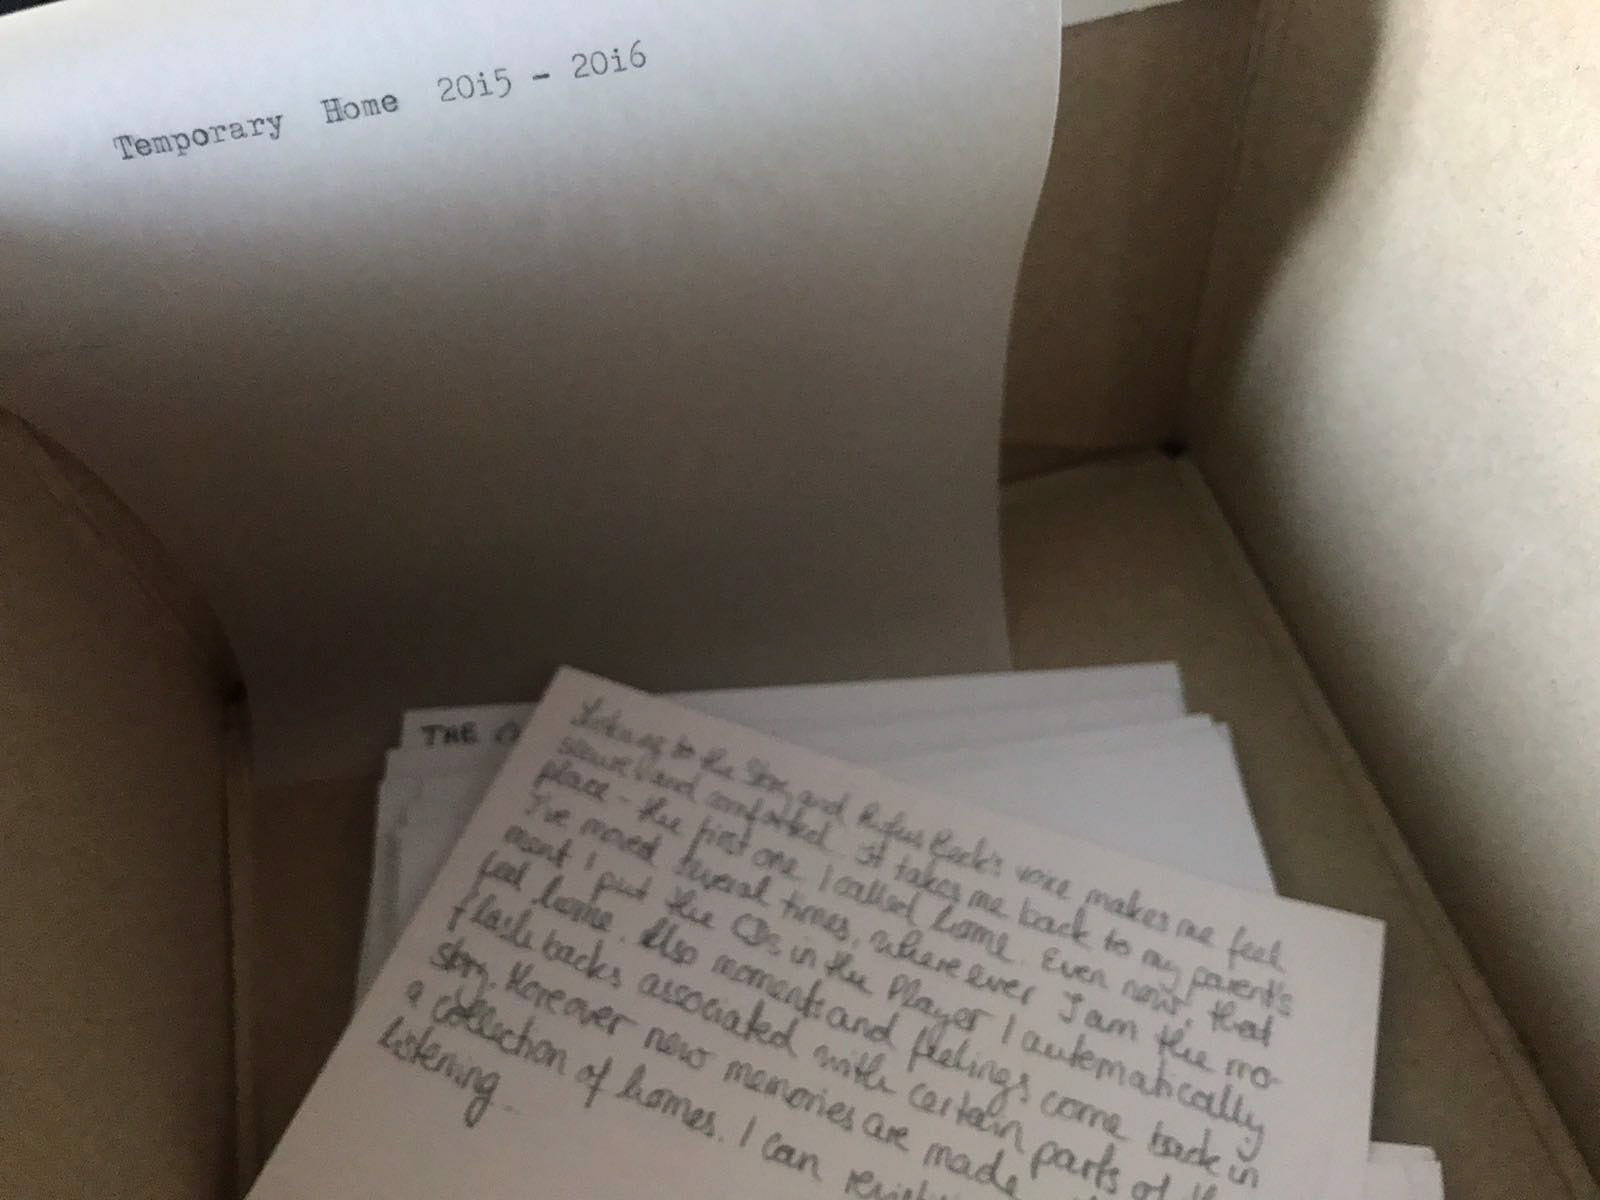 Temporary Home 20i5 - 20i6
THE
Listening to the Story and Rufus Beck's voice makes me feel
secure and comforted. It takes me back to my parent's
place - the first one I called home. Even now, that
I've moved several times, where ever I am the mo-
ment I put the CDs in the Player I automatically
feel home. Also moments and feelings come back in
flashbacks associated with certain parts of
story. Moreover new memories are made
a collection of homes. I can
listening.